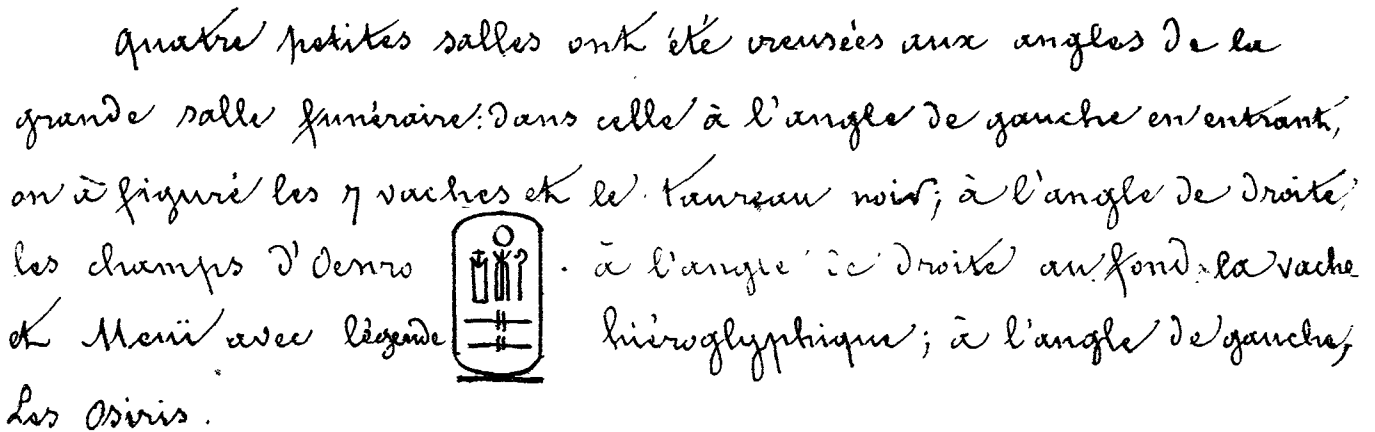 Quatre petites salles ont été creusées aux angles de la
grande salle funéraire: dans celle à l'angle de gauche en entrant,
on à figuré les 7 vaches et le taureau noir; à l'angle de droite,
les champs d'Oenro . à l'angle de droite au fond la vache
et Menï avec légende hiéroglyphique; à l'angle de gauche,
Les Osiris.